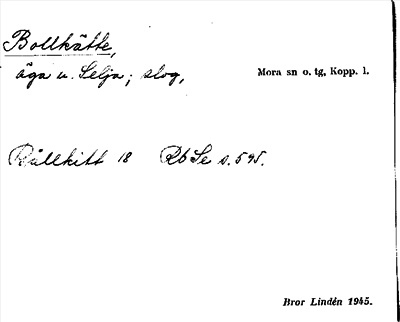 Bollkätte,
äga u. Selja; slog,
Mora sn o. tg, Kopp. l.
Bållkitt 18 Rb Se s. 595.
Bror Lindén 1945.